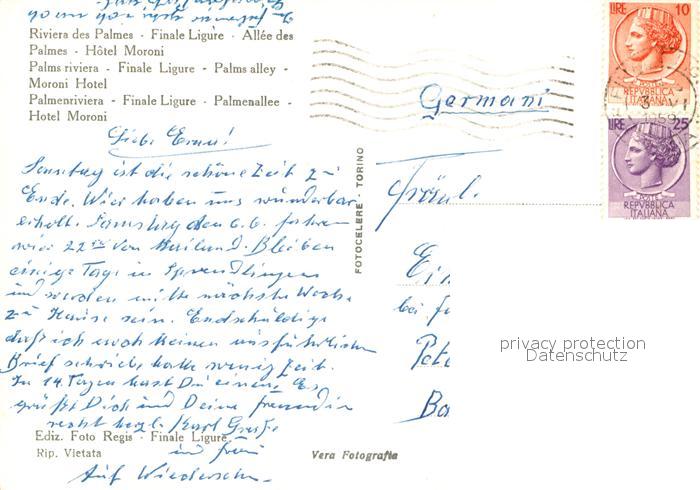 Riviera des Palmes - Finale Ligure - Allée des
Palmes - Hôtel Moroni
Palms riviera - Finale Ligure - Palms alley -
Moroni Hotel
Palmenriviera - Finale Ligure - Palmenallee -
Hotel Moroni
Liebe Erna!
Sonntag ist die schöne Zeit zu
Ende. Wir haben uns wunderbar
erholt. Samstag den 6.6. fahren
wir 22 Uhr von Mailand. Bleiben
einige Tage in Sprendlingen
und werden mitte nächste Woche
zu Hause sein. Entschuldige
daß ich noch keinen ausführlichen
Brief schrieb hatte wenig Zeit.
In 14 Tagen hast Du einen. Es
grüßt Dich und Deine Freundin
recht herzl. Karl
und Frau
Auf Wiedersehn
Ediz. Foto Regis - Finale Ligure
Rip. Vietata
Vera Fotografia
FOTOCELERE - TORINO
Germani
Fräul.
bei
LIRE 10
POSTE
REPVBBLICA
ITALIANA
LIRE 25
POSTE
REPVBBLICA
ITALIANA
privacy protection
Datenschutz